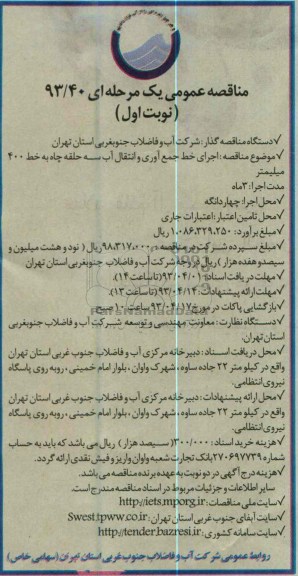 مناقصه عمومی یک مرحله ای ۹۳/۴۰
(نوبت اول)
✓دستگاه مناقصه گذار: شرکت آب و فاضلاب جنوبغربی استان تهران
✓موضوع مناقصه: اجرای خط جمع آوری و انتقال آب سه حلقه چاه به خط ۴۰۰
میلیمتر
مدت اجرا: ۳ماه
✓محل اجرا: چهاردانگه
✓محل تامین اعتبار: اعتبارات جاری
✓مبلغ برآورد: ۱,۰۸۶,۳۲۹,۲۵۰ ریال
✓مبلغ سپرده شرکت در مناقصه: ۹۸,۳۱۷,۰۰۰ریال ( نود و هشت میلیون و
سیصد و هفده هزار ) ریال در وجه شرکت آب و فاضلاب جنوبغربی استان تهران
✓مهلت دریافت اسناد: ۹۳/۰۴/۰۱(تا ساعت ۱۴).
✓مهلت ارائه پیشنهادات: ۹۳/۰۴/۱۴(تا ساعت ۱۳).
✓بازگشایی پاکات در مورخ ۹۳/۰۴/۱۷ساعت ۱۰ صبح
✓دستگاه نظارت: معاونت مهندسی و توسعه شرکت آب و فاضلاب جنوبغربی
استان تهران.
✓محل دریافت اسناد: دبیرخانه مرکزی آب و فاضلاب جنوب غربی استان تهران
واقع در کیلو متر ۲۲ جاده ساوه ، شهرک واوان ، بلوار امام خمینی ، روبه روی پاسگاه
نیروی انتظامی.
✓محل ارائه پیشنهادات : دبیرخانه مرکزی آب و فاضلاب جنوب غربی استان تهران
واقع در کیلو متر ۲۲ جاده ساوه ، شهرک واوان ، بلوار امام خمینی ، روبه روی پاسگاه
نیروی انتظامی.
✓هزینه خرید اسناد : ۳۰۰/۰۰۰( سیصد هزار ) ریال می باشد که باید به حساب
شماره ۲۷۰۶۹۷۷۳۹بانک تجارت شعبه واوان واریز و فیش نقدی ارائه گردد.
✓هزینه درج آگهی در دو نوبت به عهده برنده مناقصه می باشد.
سایر اطلاعات و جزئیات مربوط در اسناد مناقصه مندرج است.
✓سایت ملی مناقصات: http://iets.mporg.ir
✓سایت آبفای جنوب غربی استان تهران: Swest.tpww.co.ir
✓سایت سامانه کشوری: http://tender.bazresi.ir
روابط عمومی شرکت آب و فاضلاب جنوب غربی استان تهران (سهامی خاص)